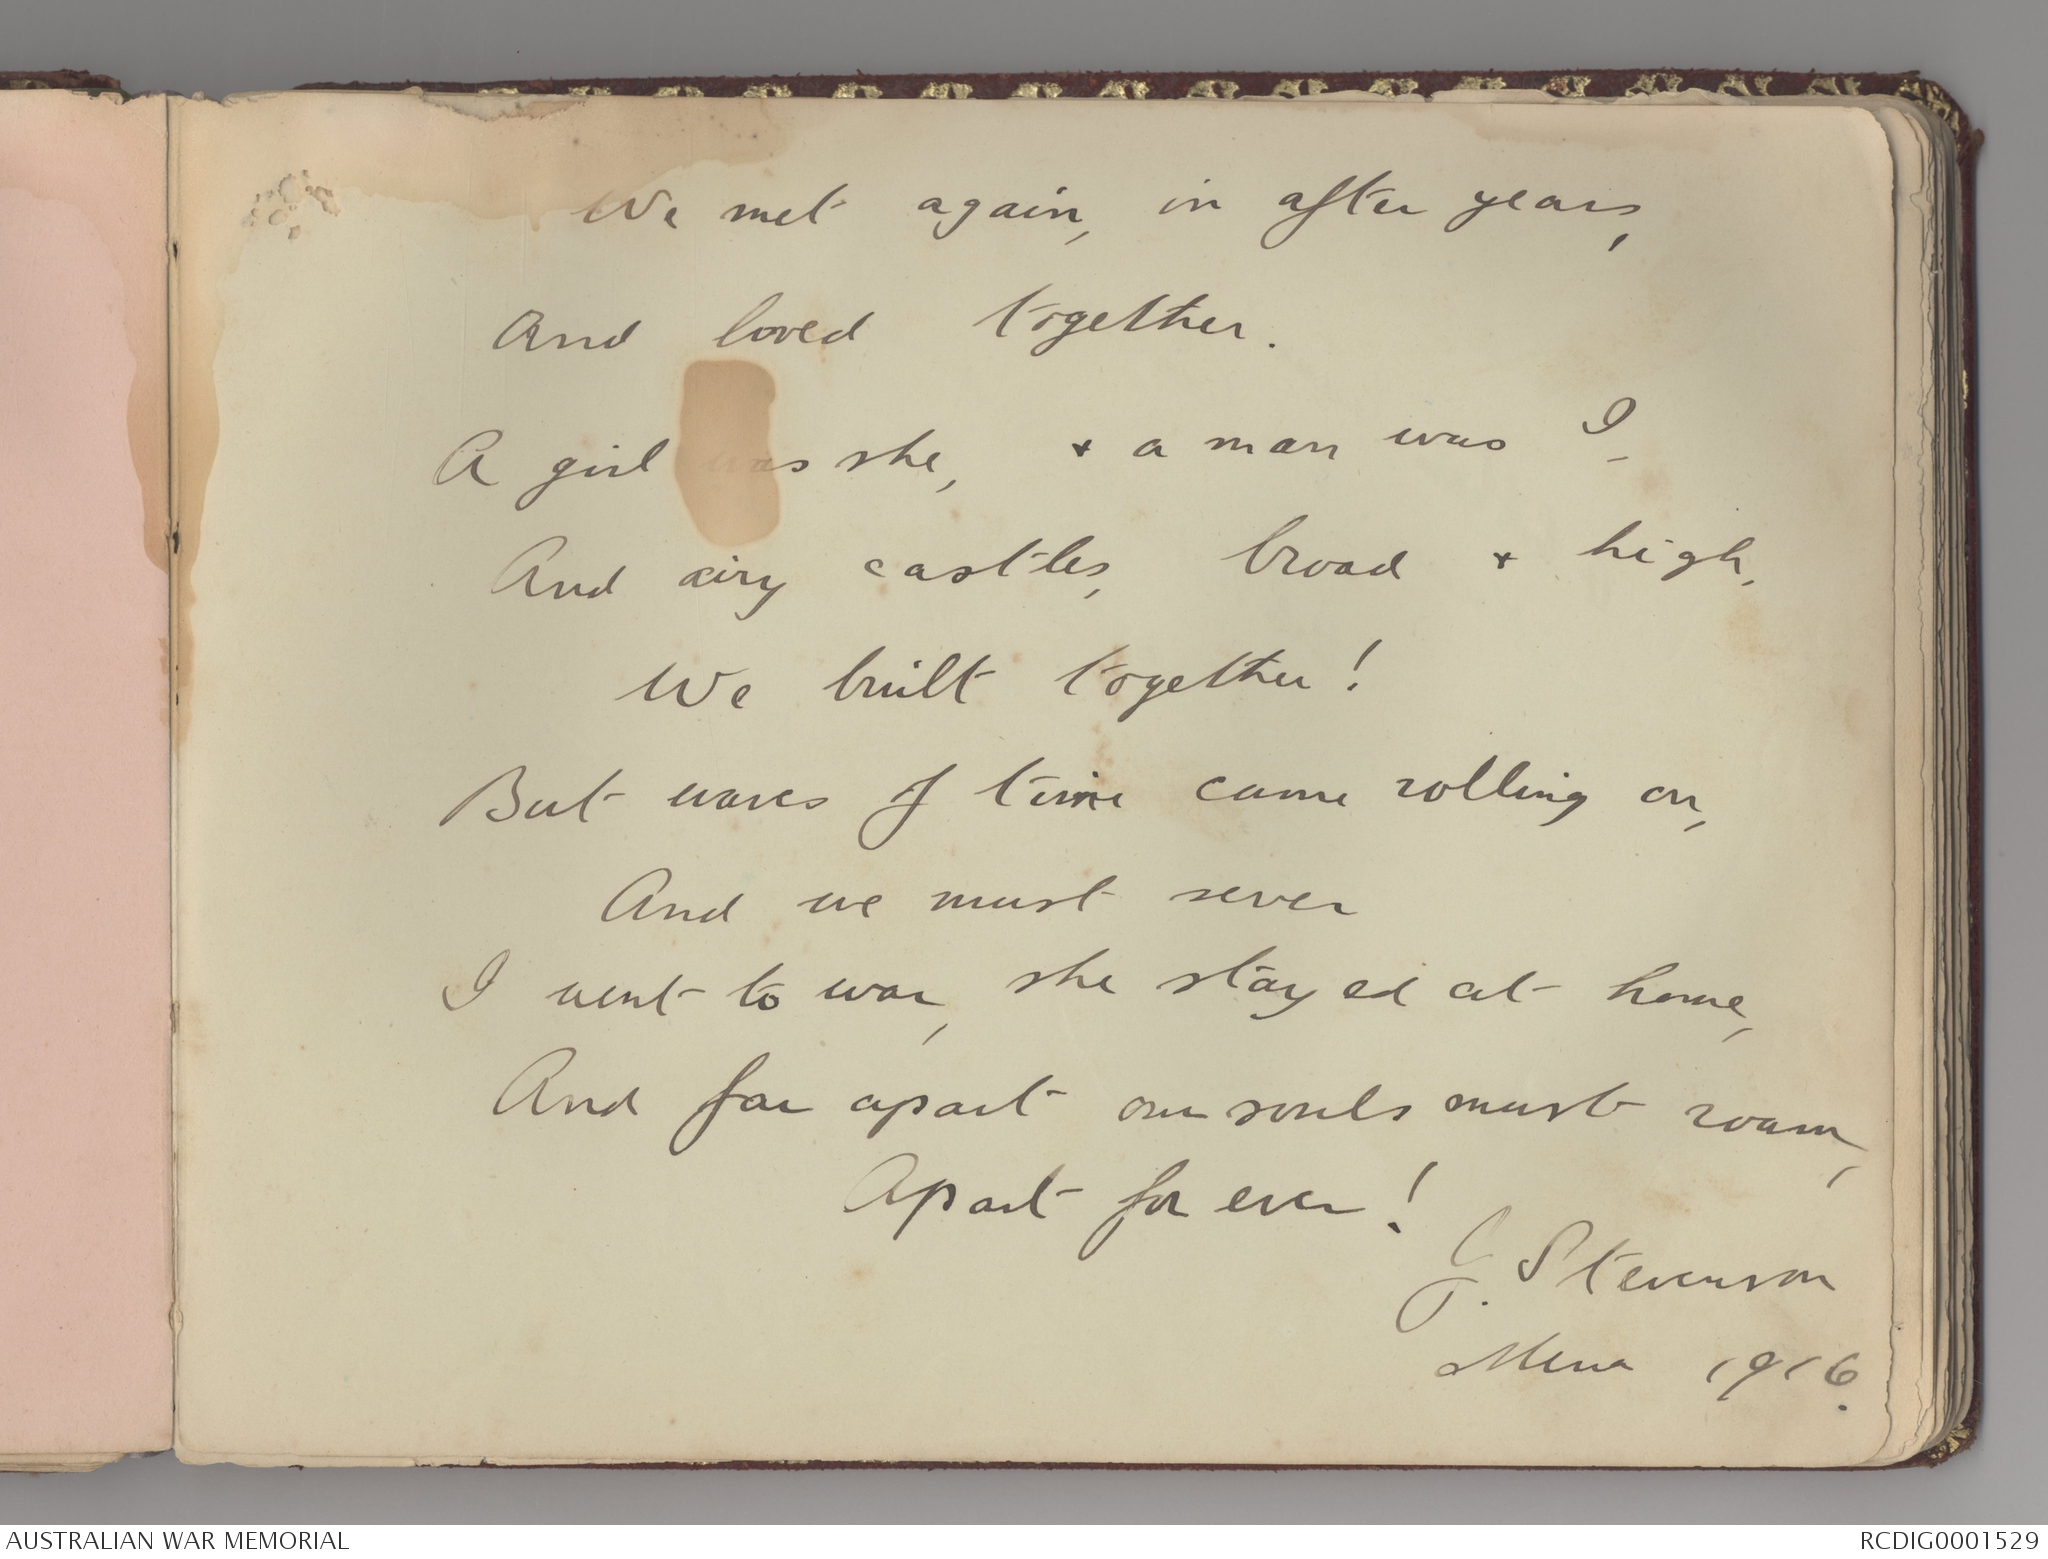 We met again, in after years,
And loved together.
A girl was she, + a man was I_
And airy castles, broad + high,
We built together!
But waves of time came rolling on,
And we must sever
I went to war, she stayed at home,
And far apart our souls must roam,
Apart for ever!
G. Stevenson
Mena 1916.
AUSTRALIAN WAR MEMORIAL
RCDIG0001529